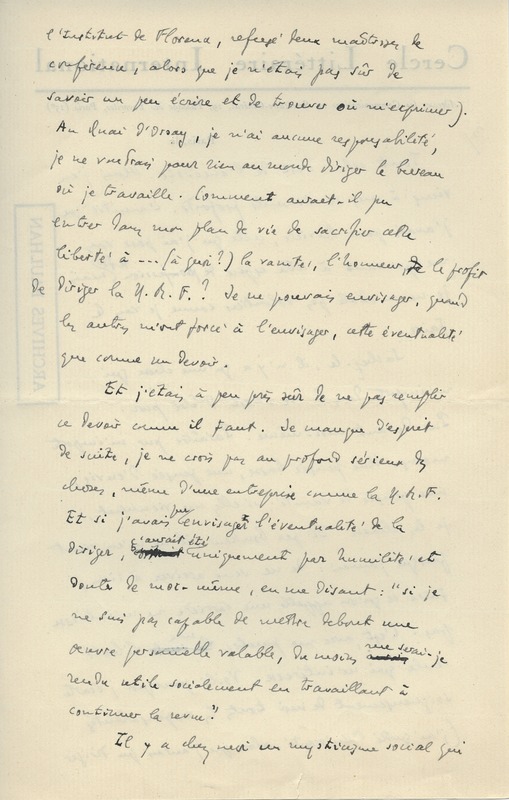 l'Institut de Florence, refusé deux maîtrises de
conférence, alors que je n'étais pas sûr de
savoir un peu écrire et de trouver où m'exprimer).
Au Quai d'Orsay, je n'ai aucune responsabilité,
je ne voudrais pour rien au monde diriger le bureau
où je travaille. Comment aurait-il pu
entrer dans mon plan de vie de sacrifier cette
liberté à --- (à quoi?) la vanité, l'honneur, le profit
de diriger la N.R.F.? Je ne pouvais envisager, quand
les autres m'ont forcé à l'envisager, cette éventualité
que comme un devoir.
Et j'étais à peu près sûr de ne pas remplir
ce devoir comme il faut. Je manque d'esprit
de suite, je ne crois pas au profond sérieux des
choses, même d'une entreprise comme la N.R.F.
Et si j'avais pu envisager l'éventualité de la
diriger, ç'aurait été uniquement par humilité et
doute de moi-même, en me disant : "si je
ne suis pas capable de mettre debout une
œuvre personnelle valable, du moins me serai-je
rendu utile socialement en travaillant à
continuer la revue".
Il y a chez moi un mysticisme social qui
Cercle Littéraire International
ARCHIVES PAULHAN